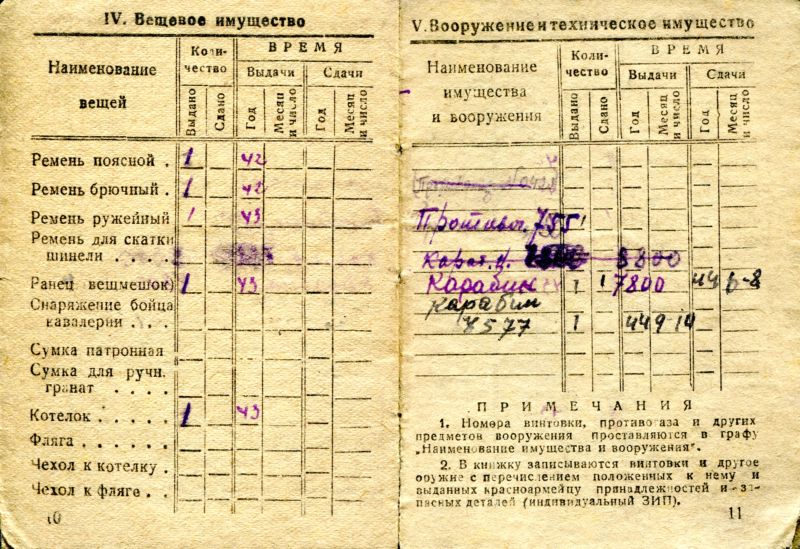 IV. Вещевое имущество
Наименование вещей
Количество
ВРЕМЯ
Выдачи
Сдачи
Выдано
Сдано
Год
Месяц и число
Год
Месяц и число
Ремень поясной . 1 42
Ремень брючный . 1 42
Ремень ружейный 1 43
Ремень для скатки
шинели . . . .
Ранец (вещмешок) 1 43
Снаряжение бойца
кавалерии . . .
Сумка патронная
Сумка для ручн.
гранат . . . .
Котелок . . . . . 1 43
Фляга . . . . . .
Чехол к котелку .
Чехол к фляге . .
10
V. Вооружение и техническое имущество
Наименование
имущества
и вооружения
Количество
ВРЕМЯ
Выдачи
Сдачи
Выдано
Сдано
Год
Месяц и число
Год
Месяц и число
Противог. 755 1
8800
Карабин 1 1 7800 44 6-8
Карабин
8577 1 44 9 14
ПРИМЕЧАНИЯ
1. Номера винтовки, противогаза и других
предметов вооружения проставляются в графу
„Наименование имущества и вооружения".
2. В книжку записываются винтовки и другое
оружие с перечислением положенных к нему и
выданных красноармейцу принадлежностей и за-
пасных деталей (индивидуальный ЗИП).
11